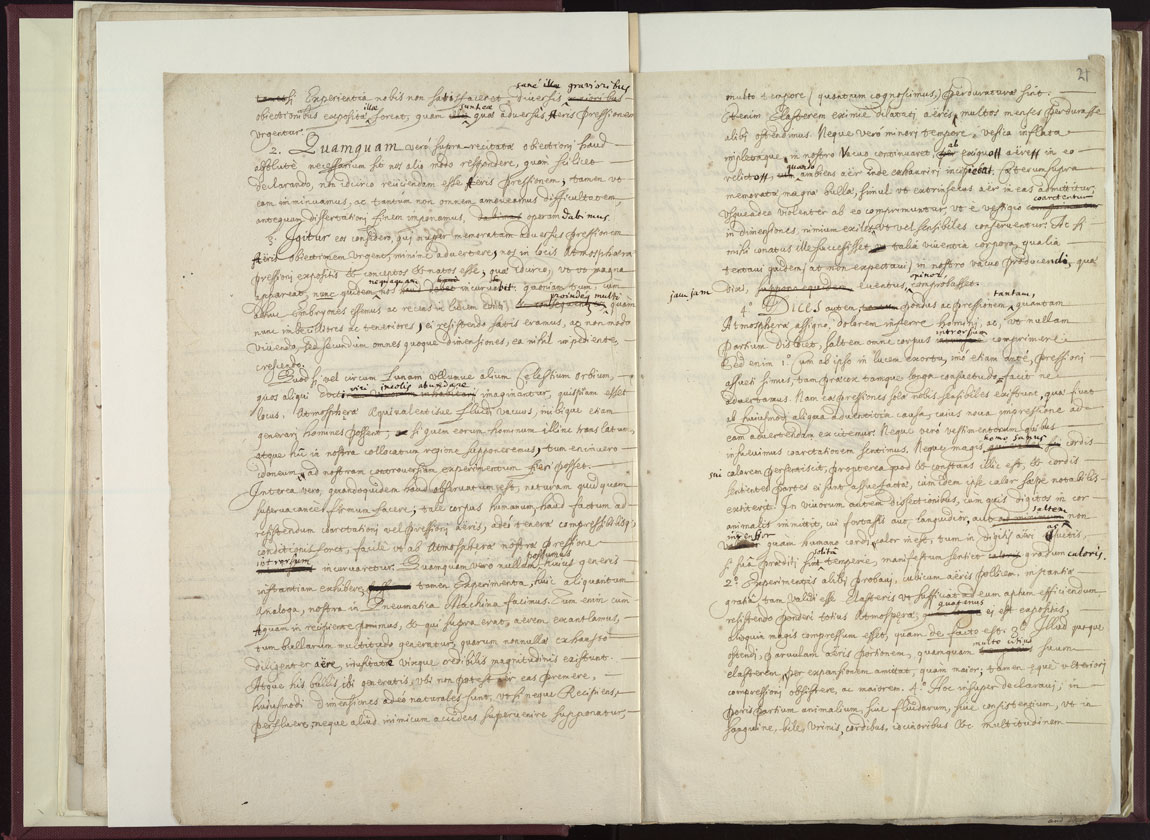 sanè illæ gravioribus
si Experientia nobis non satisfaceret diversis
obiectionibus exposita illæ foret, quam sunt ea quæ adversùs Aëris Pressionem
Vrgentur.
2. Quamquam vero supra-recitatæ obiectioni haud
absolutè necessarium sit nos alio modo respondere, quam scilicet
declarando, non idcirco reiiciendam esse Aëris Pressionem; tamen vt
eam imminuamus, ac tantùm non omnem amoveamus difficultatem
antequam dissertationi finem imponamus, operam dabimus.
3. Igitur eos considero, qui nuper memoratam adversus Pressionem
Aëris obiectionem vrgent, minimè advertere, nos in locis Atmosphæræ
pressioni expositis & conceptos & natos esse; quæ idcirco, vt vt magna
appareat, nunc quidem nos nequaquam incurvabit, quoniam tum, cùm
adhuc Embryones essemus ac recens in lucem proindeq multò quam
nunc imbecilliores ac teneriores, ei resistendo satis eramus, ac non modo
vivendo, sed secundum omnes quoque dimensiones, ea nihil impediente,
crescendo.
Quod si vel circum Lunam vllumve alium Cœlestium orbium,
quos aliqui viri incolis abundare imaginantur, quispiam esset
locus, Atmosphæræ Æquivalentisve Fluidi vacuus, in bique etiam
generari homines possent; si quem eorum hominum illinc translatum,
atque hîc in nostra collocatum regione supponeremus, tum enimvero
idoneum, ad nostram controversiam experimentum fieri posset.
Interea verò, quandoquidem haud observatum est, naturam quidquam
supervacanei solitum facere; tale corpus humanum haud factum ad
resistendum coarctationi vel pressioni aëris, adeò tenera compressibilisq;
conditionis foret, facile vt ab Atmosphæræ nostræ pressione
introrsum incurvaretur. Quamquam verò nullam possumus huius generis
instantiam exhibere, tamen Experimenta, huic aliquantum
Analoga, nostra in Pneumatica Machina facimus. Cùm enim cum
Aquam in recipiente ponimus, & qui supra erat, aërem exantlamus,
tum bullarum multitudo generatur, quarum nonnullæ exhausto
diligenter aëre, inusitatæ vixque credibilis magnitudinis existunt.
Atque his bullis, ibi generatis, vbi non potest aër eas premere,
huiusmodi dimensiones adeò naturales sunt, vt si neque Recipiens
perfluere, neque aliud inimicum accidens supervenire supponatur,
21
multo tempore (quantum cognoscimus,) perduraturæ sint.
Etenim Elasterem eximiè dilatati aëris, multos menses perdurasse
alibi ostendimus. Neque vero minori tempore, vesica inflata
impletaque in nostro Vacuo continuaret ab exiguo aëre in eo
relicto quando ambiens aër inde exhauriri incipiebat. Cæterum supra
memoratæ magnæ bullæ, simul vt extrinsecus aër in eas admittitur,
vsqueadeo violenter ab eo comprimuntur, vt è vestigio coarctentur
in dimensiones, nimium exiles vt vel sensibiles conserventur. Ac si
mihi conatus ille successisset, talia viventia corpora, qualia
tentavi quidem, at non expectavi, in nostro vacuo producendi, quæ
jam jam dixi, eventus, opinor, comprobasset.
4. Dices autem pondus ac pressionem tantam, quantam
Atmosphæræ assigno, dolorem inferre homini, ac, vt nullam
partium dislocet, saltem omne corpus introrsum comprimere.
Sed enim 1.º cum ab ipso in lucem exortu, imò etiam antè, pressioni
assueti simus, tam præcox tamque longa consuetudo, facit ne
advertamus. Nam eæ pressiones solæ nobis sensibiles existunt, quæ fiunt
ab huiusmodi aliqua adventitia causa, cuius nova impressione ad
eam advertendam excitemur. Neque verò vestimentorum quibus
insuevimus coarctationem sentimus. Neque magis homo sanus cordis
sui calorem persentiscit, propterea quod & constans illic est, & cordis
sentientes partes ei sunt assuefactæ, cùm idem ipse calor sæpe notabilis
extiterit. In vivorum autem dissectionibus, cùm quis digitos in cor
animalis immittit, cui fortassis aut languidior, aut saltem non
intensior quam humano cordi, calor inest, tum in digitis aëri assuetis,
suâ præditi solitâ temperie, manifestum sentiet gradum caloris.
2.º Experimentis alibi probavi, cubicum aëris pollicem, instantiæ
gratiâ, tam validi esse Elasteris vt sufficiat ad eum aptum efficiendum
resistendo ponderi totius Atmosphæræ, quatenus ei est expositus,
alioquin magis compressum esset, quam de facto est. 3.º Illud quoque
ostendi, parvulam aëris portionem, quamquam multo citius suum
elasterem per expansionem amittat, quam maior, tamen æque vlteriori
compressioni obsistere, ac maiorem. 4.º Hoc insuper declaravi, in
poris partium animalium, siue fluidarum, siue consistentium, vt in
sanguine, bile, vrinis, cordibus, iecinoribus &c multitudinem